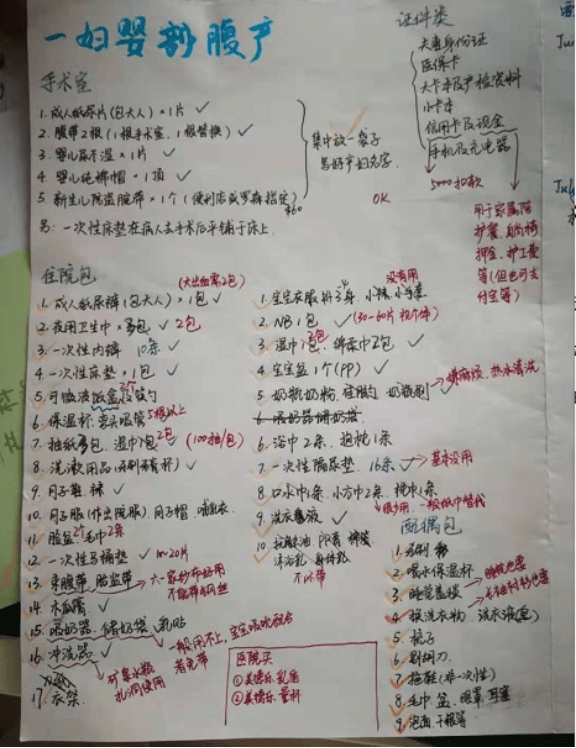 一妇婴剖腹产
手术室
1. 成人纸尿片(包大人)×1片 ✓
2. 腹带2根(1根手术室,1根替换) ✓
3. 婴儿尿不湿×1片 ✓
4. 婴儿纯棉帽×1顶 ✓
5. 新生儿脐盘腕带×1个(便利店或罗森指定)
¥60
另: 一次性床垫在病人去手术后平铺于床上.
集中放一袋子
写好产妇名字.
OK
证件类
夫妻身份证
医保卡
大卡本及产检资料
小卡本
信用卡及现金
手机及充电器
5000扣款
用于家属陪
护餐、躺椅
押金、护工费
等(但也可支
付宝等)
住院包
(大出血需2包)
1. 成人纸尿裤(包大人)×1包 ✓
2. 夜用卫生巾×3包 ✓ 2包
3. 一次性内裤 10条 ✓
4. 一次性床垫×1包 ✓
5. 可微波饭盒 2个 筷勺
6. 保温杯. 弯头吸管 5根以上
7. 抽纸3包, 湿巾1包 2包 (100抽/包)
8. 洗漱用品(牙刷漱杯) ✓
9. 月子鞋, 袜 ✓
10. 月子服(作出院服). 月子帽. 哺乳衣
11. 脸盆2个 毛巾2条
12. 一次性马桶垫 ✓ 10~20片
13. 束腹带, 胎监带
14. 木瓜膏 ✓
15. 吸奶器. 储奶袋. 乳贴
16. 冲洗器 ✓
矿泉水瓶
扎洞使用
17. 衣架
没有用
1. 宝宝衣服 小袜. 小手套
2. NB1包 ✓ (30-60片视个体)
3. 湿巾1包, 绵柔巾2包 ✓
4. 宝宝盆1个(PP) ✓
5. 奶瓶奶粉, 硅胶勺 奶瓶刷 ✓
嫌麻烦, 热水清洗
6. 吸奶器储奶袋
6. 浴巾2条, 抱枕1条
7. 一次性隔尿垫. 16条 ✓ 基本没用
8. 口水巾1条, 小方巾2条, 枕巾1条
很少用, 一般纸巾替代
9. 洗衣液 ✓
沐浴乳 身体乳
不必带
医院买
①美德乐乳盾
②美德乐量杯
配偶包
1. 牙刷
2. 喝水保温杯
3. 睡觉盖毯
睡枕也需
4. 换洗衣物. 洗衣液
5. 梳子
6. 剃胡刀
7. 拖鞋(非一次性)
8. 毛巾 盆. 眼罩, 耳塞
9. 泡面 干粮等